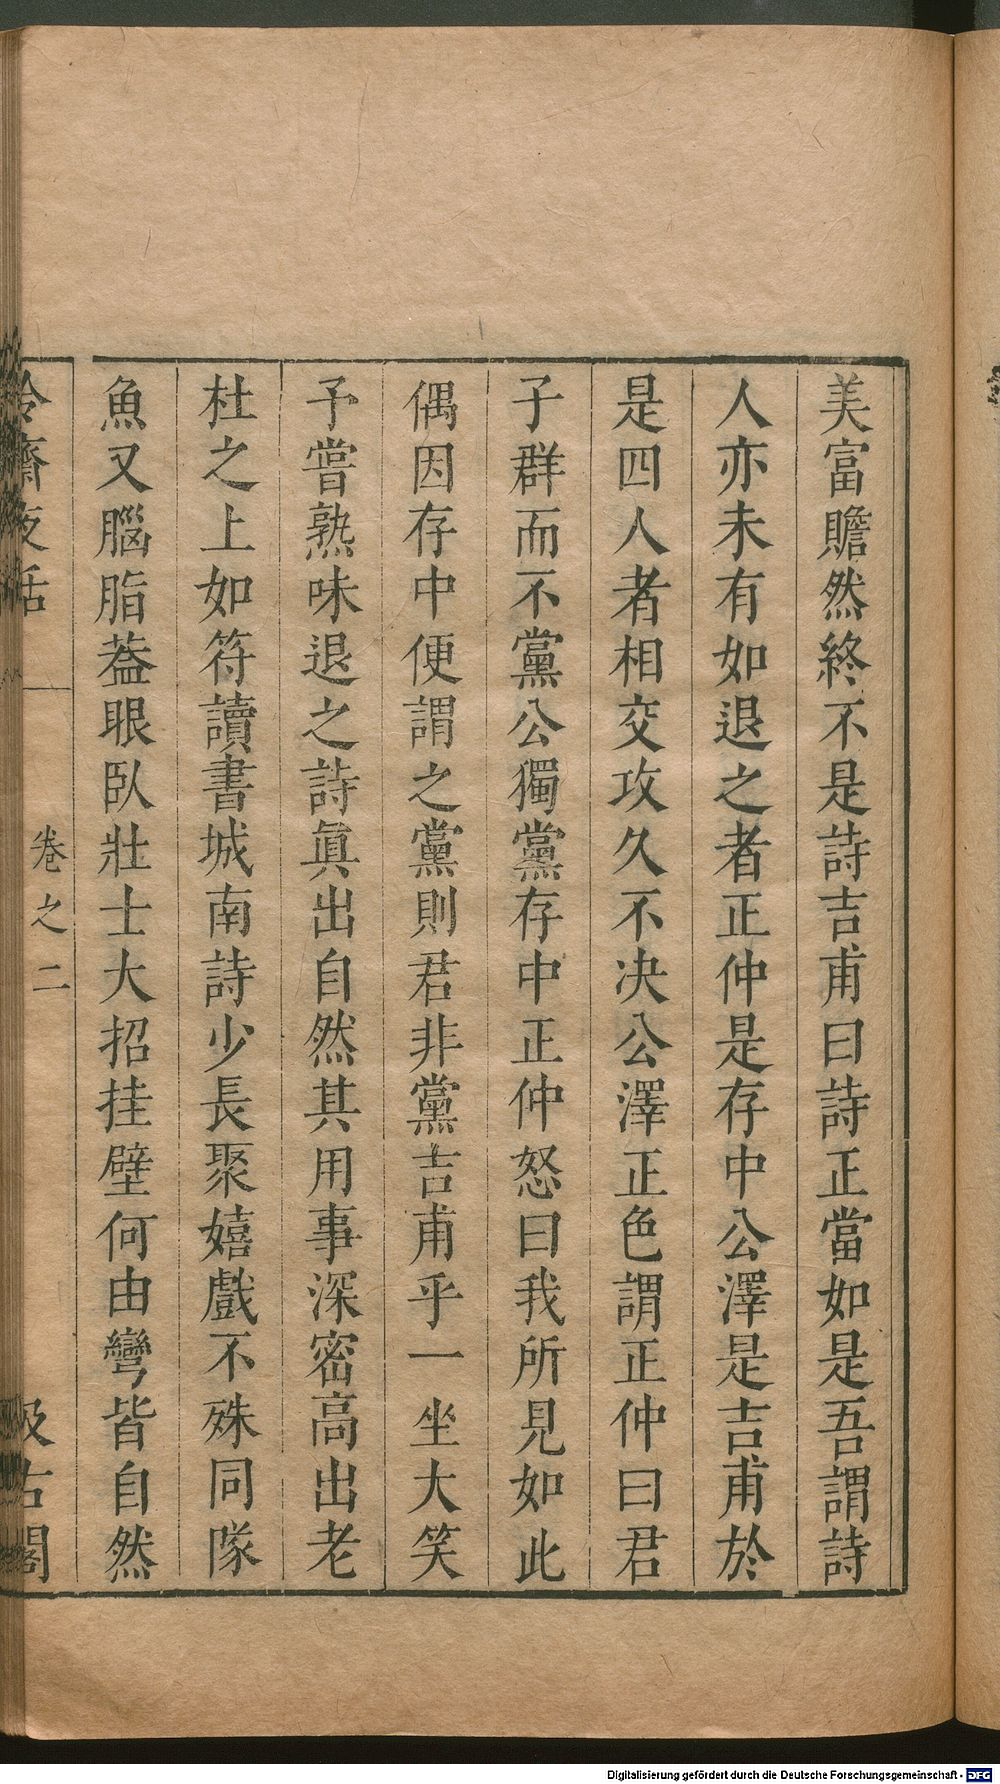 美富贍然終不是詩吉甫曰詩正當如是吾謂詩
人亦未有如退之者正仲是存中公澤是吉甫於
是四人者相交攻久不決公澤正色謂正仲曰君
子群而不黨公獨黨存中正仲怒曰我所見如此
偶因存中便謂之黨則君非黨吉甫乎一坐大笑
予嘗熟味退之詩眞出自然其用事深密高出老
杜之上如符讀書城南詩少長聚嬉戲不殊同隊
魚又腦脂葢眼臥壯士大招挂壁何由彎皆自然
冷齋夜話
卷之二
汲古閣
Digitalisierung gefördert durch die Deutsche Forschungsgemeinschaft - DFG